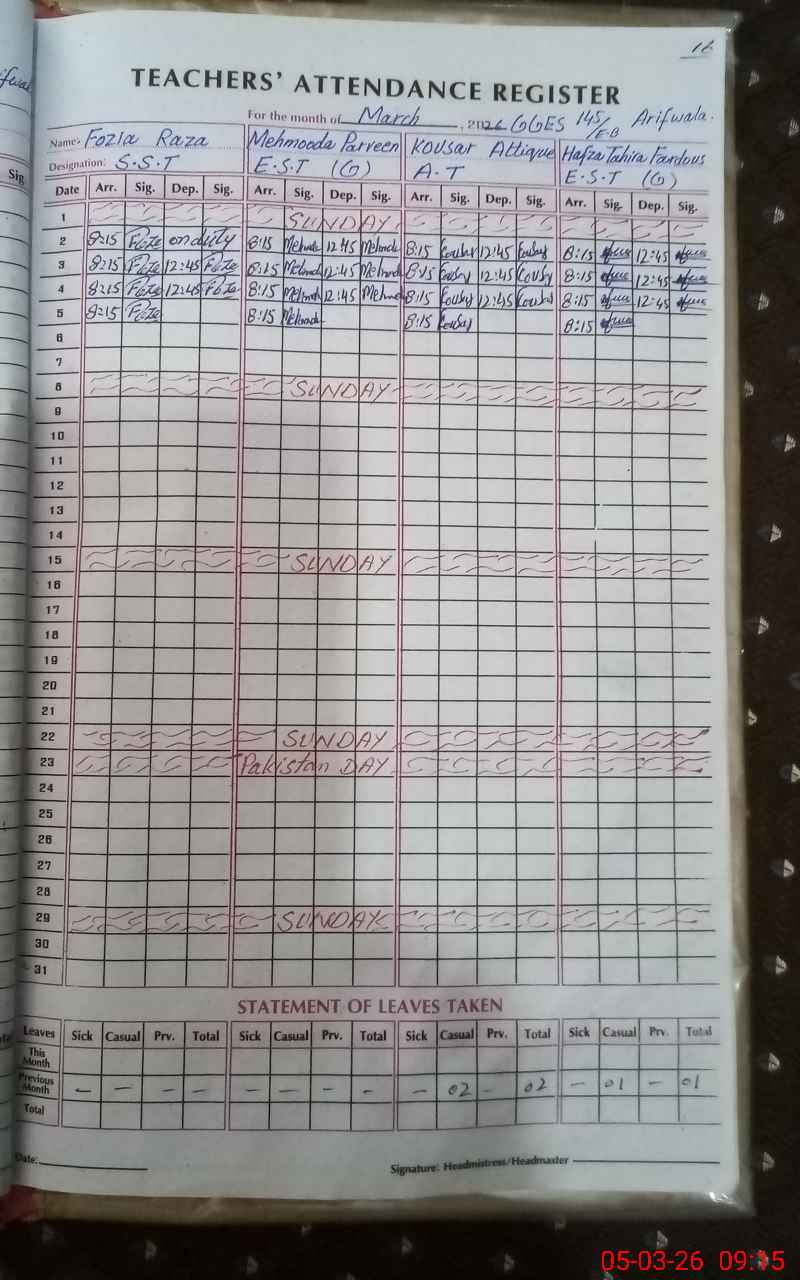 16
TEACHERS' ATTENDANCE REGISTER
For the month of March, 2026 GGES 145/E-B Arifwala.
Name: Fozia Raza Mehmooda Parveen Kousar Attique Hafza Tahira Fardous
Designation: S.S.T E.S.T (G) A.T E.S.T (G)
Sig.
Date Arr. Sig. Dep. Sig. Arr. Sig. Dep. Sig. Arr. Sig. Dep. Sig. Arr. Sig. Dep. Sig.
1 SUNDAY
2 8:15 on duty 8:15 12:45 8:15 12:45 8:15 12:45
3 8:15 12:45 8:15 12:45 8:15 12:45 8:15 12:45
4 8:15 12:45 8:15 12:45 8:15 12:45 8:15 12:45
5 8:15 8:15 8:15 8:15
6
7
8 SUNDAY
9
10
11
12
13
14
15 SUNDAY
16
17
18
19
20
21
22 SUNDAY
23 Pakistan DAY
24
25
26
27
28
29 SUNDAY
30
31
STATEMENT OF LEAVES TAKEN
Leaves Sick Casual Prv. Total Sick Casual Prv. Total Sick Casual Prv. Total Sick Casual Prv. Total
This Month
Previous Month – – – – – – – – – 02 – 02 – 01 – 01
Total
Date:
Signature: Headmistress/Headmaster
05-03-26 09:15